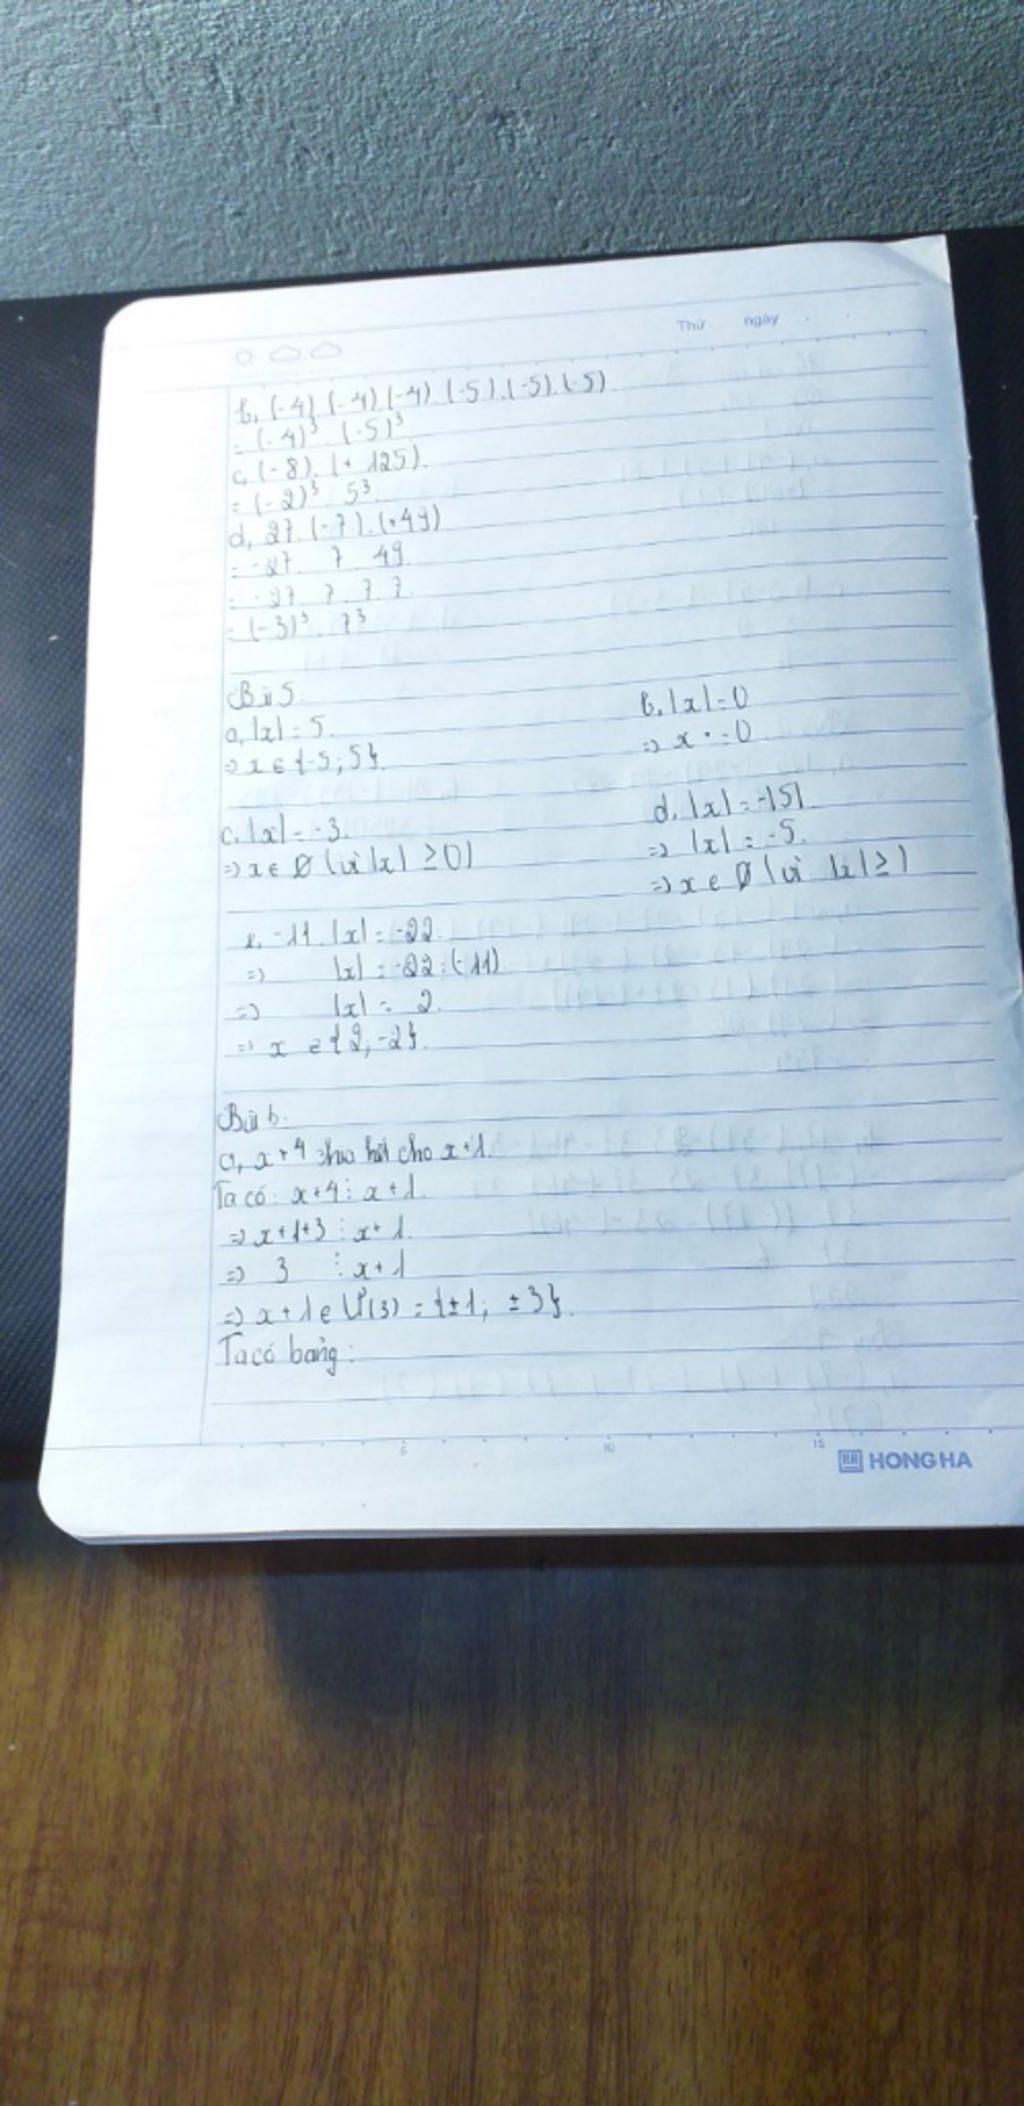 Thứ ngày
b, (-4) (-4) (-4) (-5).(-5).(-5)
= (-4)³ . (-5)³
c, (-8). (+ 125).
= (-2)³ . 5³
d, 27. (-7). (+49)
= -27. 7. 49.
= -27. 7. 7. 7
= (-3)³. 7³
Bài 5.
a, |x| = 5.
⇒ x ∈ {-5; 5}.
b, |x| = 0
⇒ x = 0
c, |x| = -3.
⇒ x ∈ Ø (vì |x| ≥ 0)
d, |x| = -|5|.
⇒ |x| = -5.
⇒ x ∈ Ø (vì |x| ≥ )
e, -11. |x| = -22.
⇒ |x| = -22 : (-11)
⇒ |x| = 2.
⇒ x ∈ {2; -2}.
Bài 6.
a, x + 4 chia hết cho x + 1.
Ta có: x+4 ⋮ x+1.
⇒ x+1+3 ⋮ x+1.
⇒ 3 ⋮ x+1
⇒ x+1 ∈ Ư(3) = {±1; ±3}.
Ta có bảng:
5 10 15
HH HONG HA